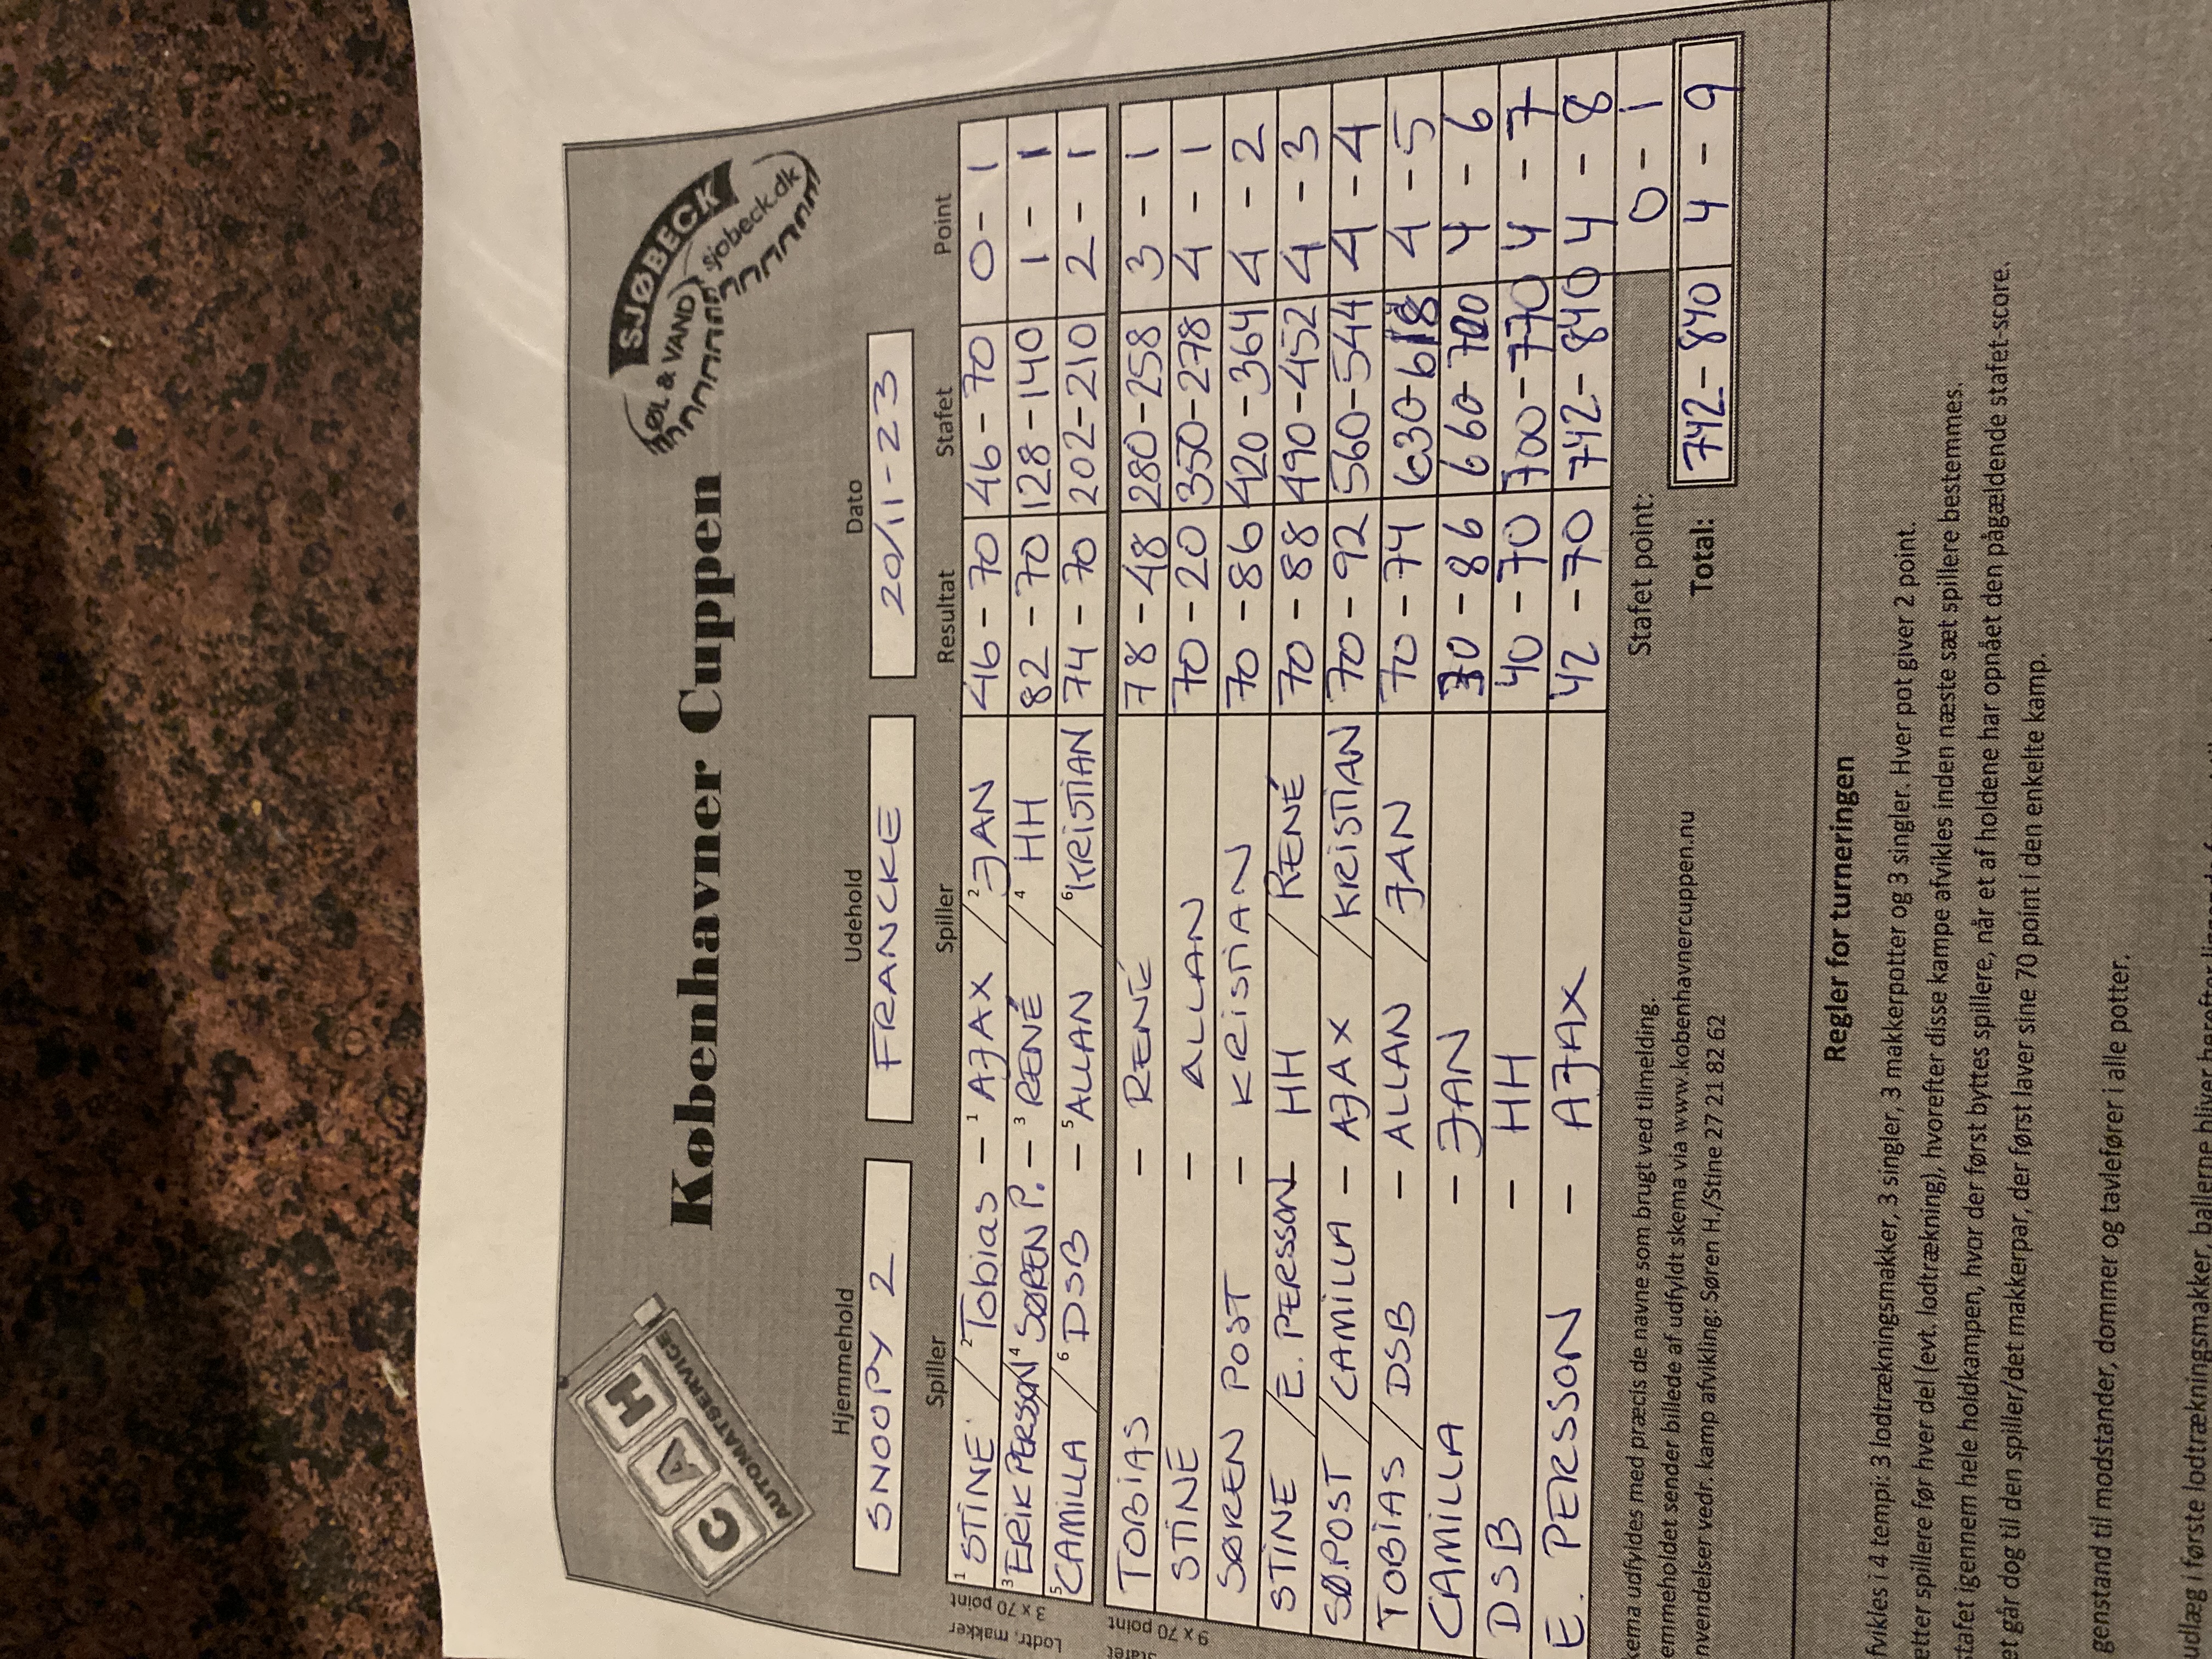 CAH
AUTOMATSERVICE
Københavner Cuppen
SJØBECK
ØL & VAND
sjobeck.dk
Hjemmehold Udehold Dato
SNOOPY 2 FRANCKE 20/11-23
Spiller Spiller Resultat Stafet Point
Lodtr. makker
3 x 70 point
1 STINE / 2 Tobias - 1 AJAX / 2 JAN 46-70 46-70 0-1
3 ERIK PERSSON / 4 SØREN P. - 3 RENÉ / 4 HH 82-70 128-140 1-1
5 CAMILLA / 6 DSB - 5 ALLAN / 6 KRISTIAN 74-70 202-210 2-1
Stafet
9 x 70 point
TOBIAS - RENÉ 78-48 280-258 3-1
STINE - ALLAN 70-20 350-278 4-1
SØREN POST - KRISTIAN 70-86 420-364 4-2
STINE / E. PERSSON - HH / RENÉ 70-88 490-452 4-3
SØ.POST / CAMILLA - AJAX / KRISTIAN 70-92 560-544 4-4
TOBIAS / DSB - ALLAN / JAN 70-74 630-618 4-5
CAMILLA - JAN 30-86 660-700 4-6
DSB - HH 40-70 700-770 4-7
E. PERSSON - AJAX 42-70 742-840 4-8
Stafet point: 0-1
Total: 742-840 4-9
kema udfyldes med præcis de navne som brugt ved tilmelding.
emmeholdet sender billede af udfyldt skema via www.kobenhavnercuppen.nu
nvendelser vedr. kamp afvikling: Søren H./Stine 27 21 82 62
Regler for turneringen
fvikles i 4 tempi: 3 lodtrækningsmakker, 3 singler, 3 makkerpotter og 3 singler. Hver pot giver 2 point.
etter spillere før hver del (evt. lodtrækning), hvorefter disse kampe afvikles inden næste sæt spillere bestemmes.
stafet igennem hele holdkampen, hvor der først byttes spillere, når et af holdene har opnået den pågældende stafet-score.
et går dog til den spiller/det makkerpar, der først laver sine 70 point i den enkelte kamp.
genstand til modstander, dommer og tavlefører i alle potter.
udlæg i første lodtrækningsmakker, ballerne bliver herefter liggende